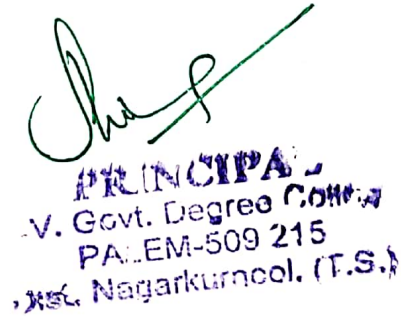 PRINCIPAL
V. Govt. Degree College
PALEM-509 215
Dist. Nagarkurnool. (T.S.)